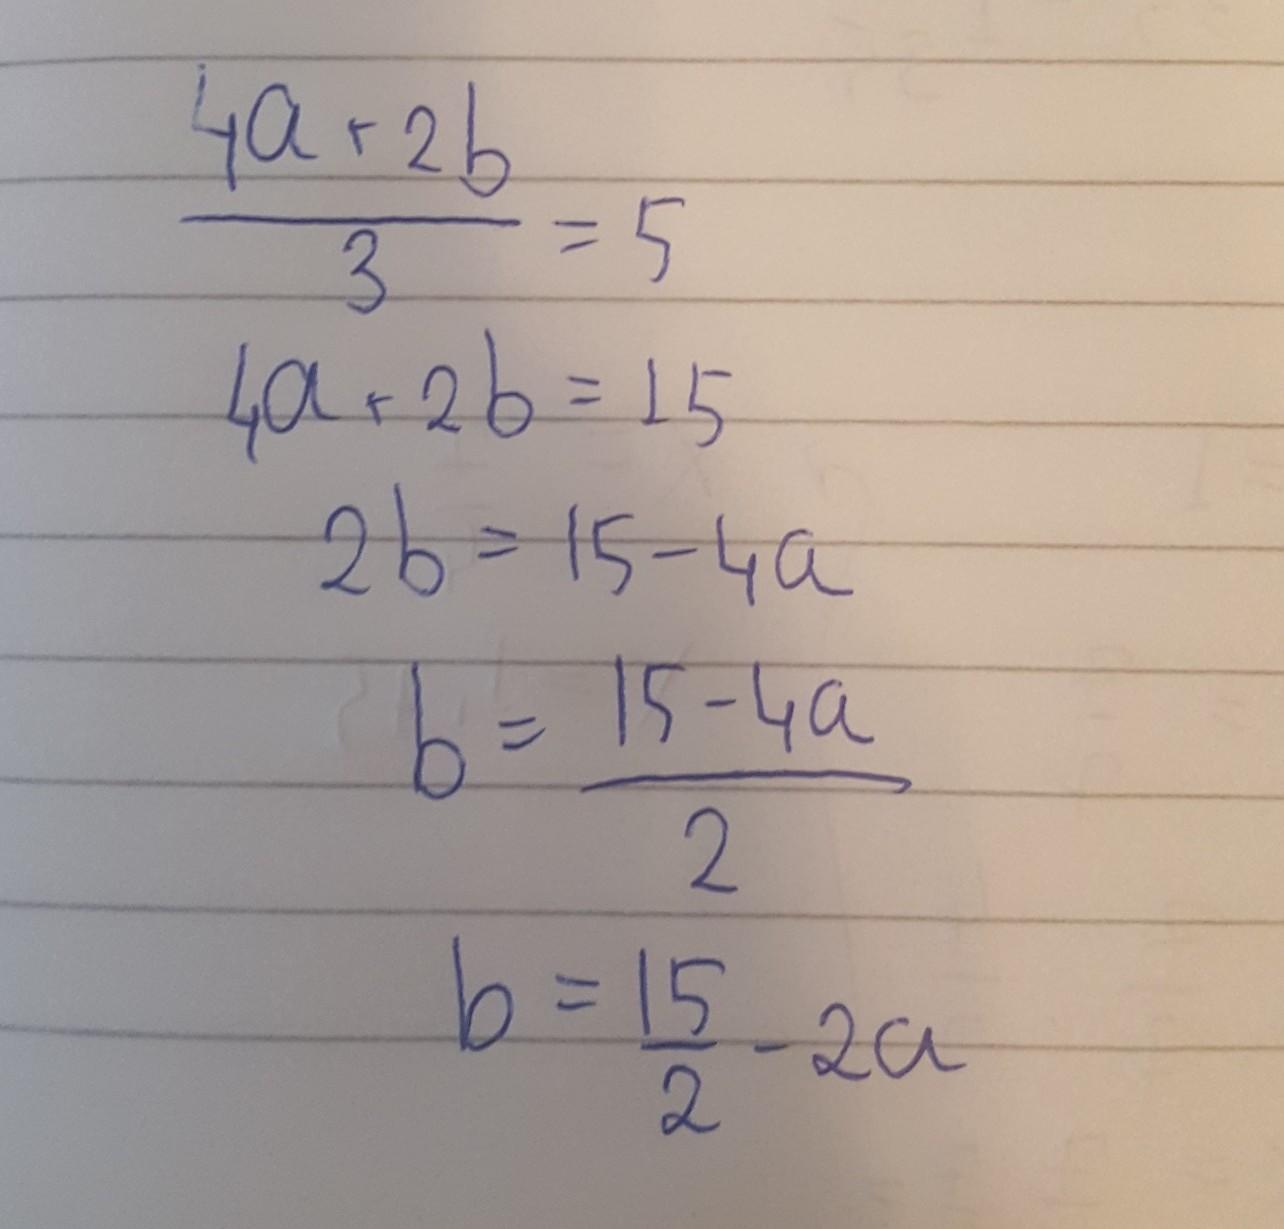 (4a + 2b)/3 = 5
4a + 2b = 15
2b = 15 - 4a
b = (15 - 4a)/2
b = 15/2 - 2a